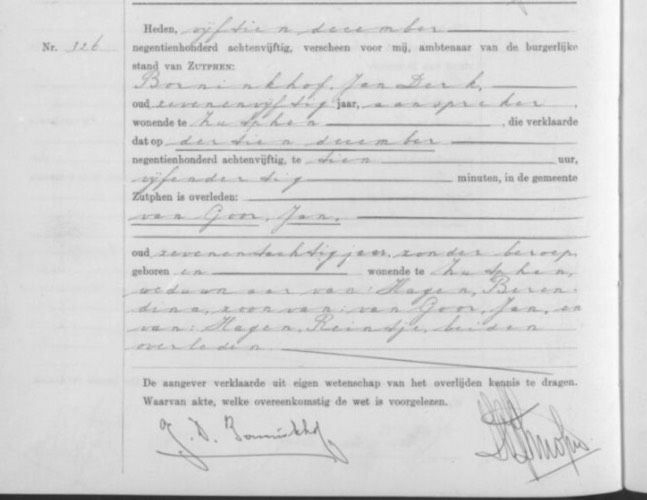 Heden, vijftien december
Nr. 326 negentienhonderd achtenvijftig, verscheen voor mij, ambtenaar van de burgerlijke
stand van ZUTPHEN:
Borninkhof, Jan Derk,
oud zevenenvijftig jaar, aanspreker,
wonende te Zutphen, die verklaarde
dat op dertien december
negentienhonderd achtenvijftig, te tien uur,
vijfendertig minuten, in de gemeente
Zutphen is overleden:
van Goor, Jan,
oud zevenentachtig jaar, zonder beroep,
geboren en wonende te Zutphen,
weduwnaar van: Hagen, Beren-
dina, zoon van: van Goor, Jan, en
van: Hagen, Reintje, beiden
overleden
De aangever verklaarde uit eigen wetenschap van het overlijden kennis te dragen.
Waarvan akte, welke overeenkomstig de wet is voorgelezen.
J. D. Borninkhof